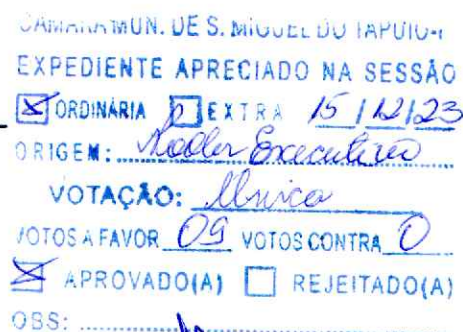 CÂMARA MUN. DE S. MIGUEL DO TAPUIO-
EXPEDIENTE APRECIADO NA SESSÃO
☒ ORDINÁRIA ☐ EXTRA 15/12/23
ORIGEM: Poder Executivo
VOTAÇÃO: Única
VOTOS A FAVOR 09 VOTOS CONTRA 0
☒ APROVADO(A) ☐ REJEITADO(A)
OBS: